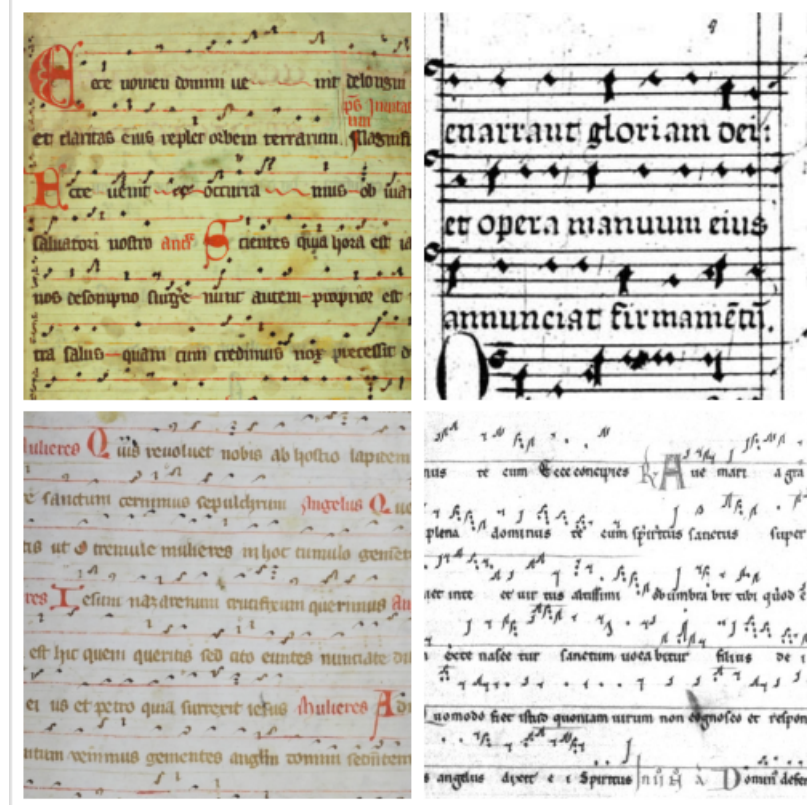 Ecce nomen domini ue nit delongin
p̄s Inuitat
et claritas eius replet orbem terrarum Magnifi
Ecce uenit ex occurra mus ob uiam
saluatori nostro anā Scientes quia hora est ia
nos desompno surge nunc autem proprior est
tra salus quam cum credimus nox precessit d
enarrant gloriam dei:
et opera manuum eius
annunciat firmamētū.
ulieres Quis reuoluet nobis ab hostio lapitem
sanctum cernimus sepulchrum Angelus Qu
is ut o tremule mulieres in hoc tumulo gemēt
res Iesum nazarenum crucifixum querimus An
est hic quem queritis sed cito euntes nunciate di
ei us et petro quia surrexit iesus Mulieres Ad
ntum uenimus gementes
nus te cum Ecce concipies R Aue mari a gra
plena dominus te cum spiritus sanctus super
et inte et uir tus altissimi obumbra bit tibi quod e
ecce nasce tur sanctum uoca bitur filius de i
uomodo fiet istud quoniam uirum non cognosco et respon
s angelus dixit e i Spiritus Domin